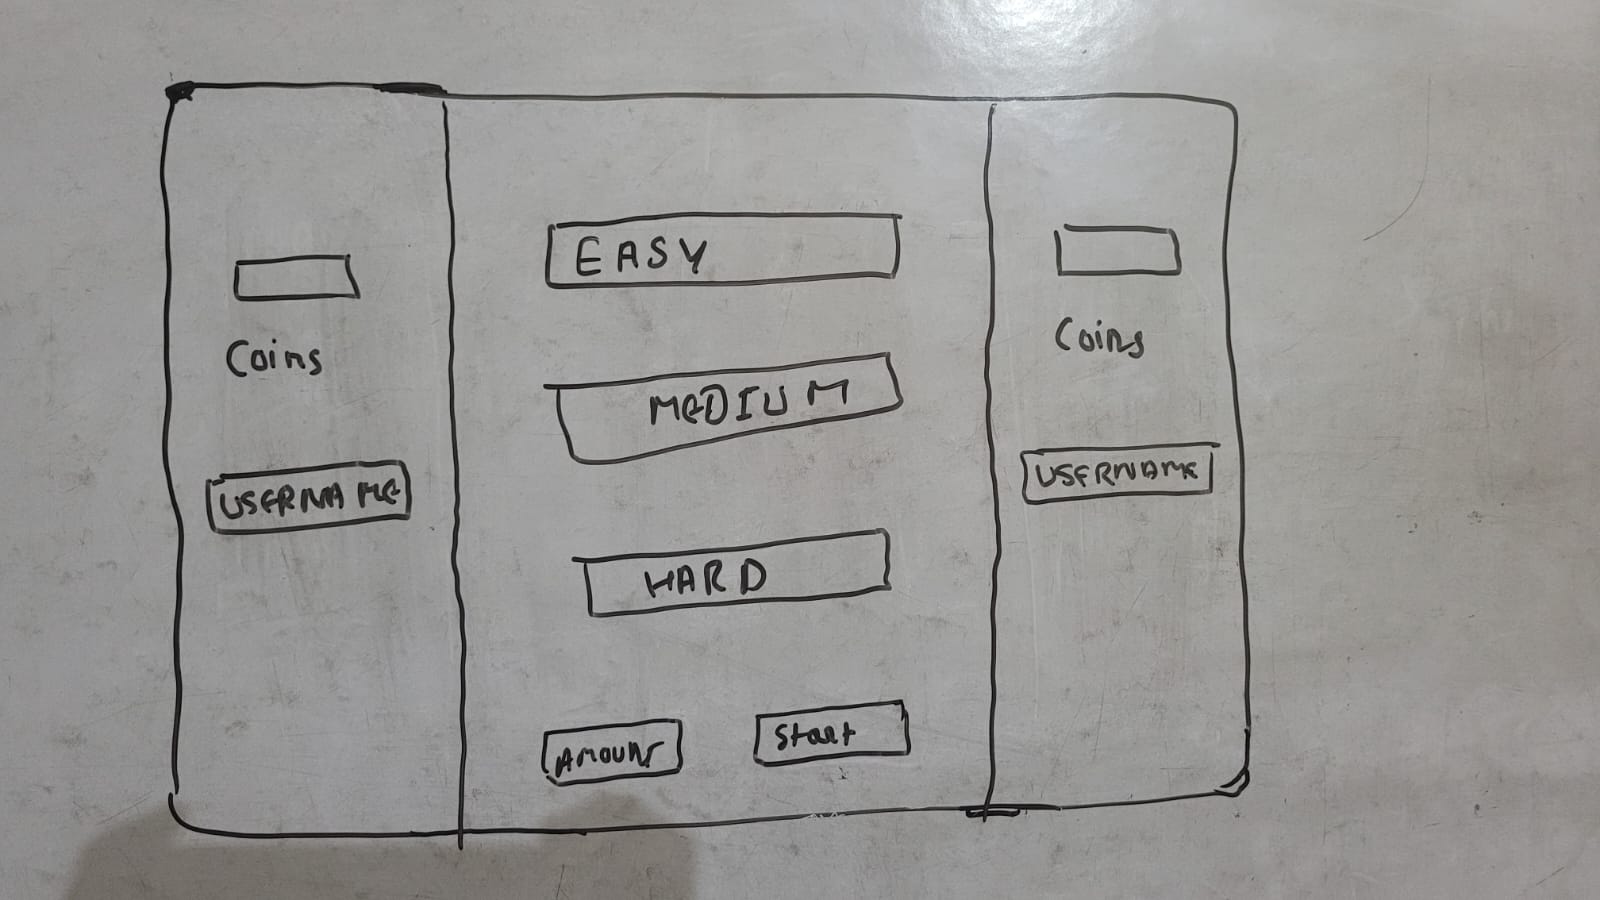 Coins
USERNAME
EASY
MEDIUM
HARD
AMOUNT
Start
Coins
USERNAME